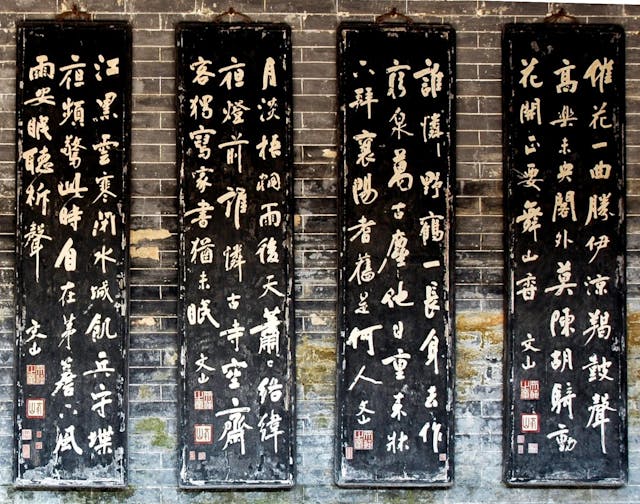 催花一曲勝伊涼羯鼓聲
高樂未央閣外莫陳胡騎動
花開正要舞山香
文山
誰憐野鶴一長身去作
窮泉萬古塵他日重来牀
下拜襄陽耆舊是何人
文山
月淡梧桐雨後天蕭〻絡緯
夜燈前誰憐古寺空齋
客獨寫家書猶未眠
文山
江黑雲寒閉水城飢兵守堞
夜頻驚此時自在茅簷下風
雨安眠聽柝聲
文山